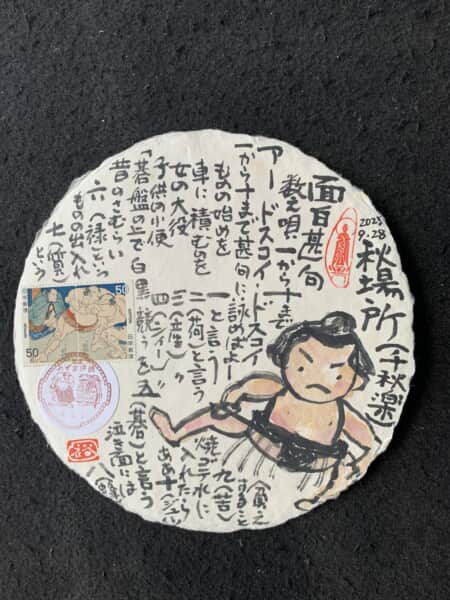 2025
9.28
秋場所(千秋楽)
面白甚句
数え唄 一から十まで
アードスコイ、ドスコイ
一から十まで甚句に詠めばよー
ものの始めを
一と言う
車に積むのを
二(荷)と言う
女の大役
三(産)〃
子供の小便
四(シィー)〃
「碁盤の上で白黒競うを五(碁)と言う
昔のさむらい
六(禄)とっ
ものの出入れ
七(質)という
泣き面には
八(蜂)
すること
九(苦)
焼ゴテ水に
入れたら
ああ十
50
50
日本郵便